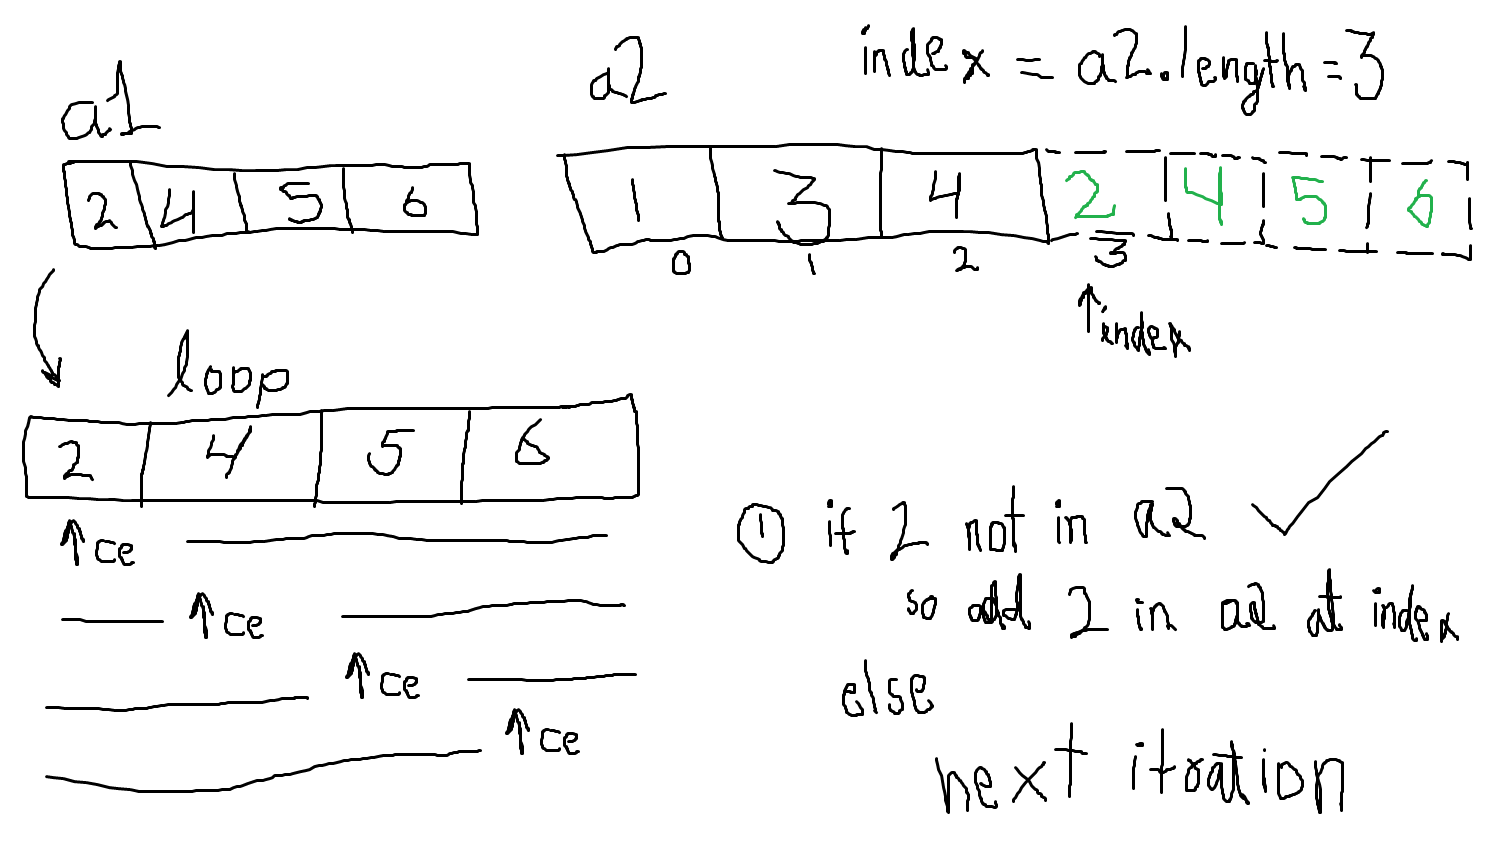 index = a2.length = 3
a1
a2
2 4 5 6
1 3 4 2 4 5 6
0 1 2 3
index
loop
2 4 5 6
ce
ce
ce
ce
1 if 2 not in a2
so add 2 in a2 at index
else
next itration